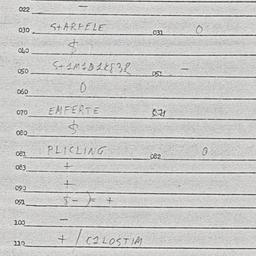 022 –
030 STARPELE 031 0
040 $
050 051 –
060 0
070 EMFERTE 071
080 $
081 PLICLING 082 0
083 +
090 +
091 $ - ) = +
100 –
110 + / C2LOSTIM